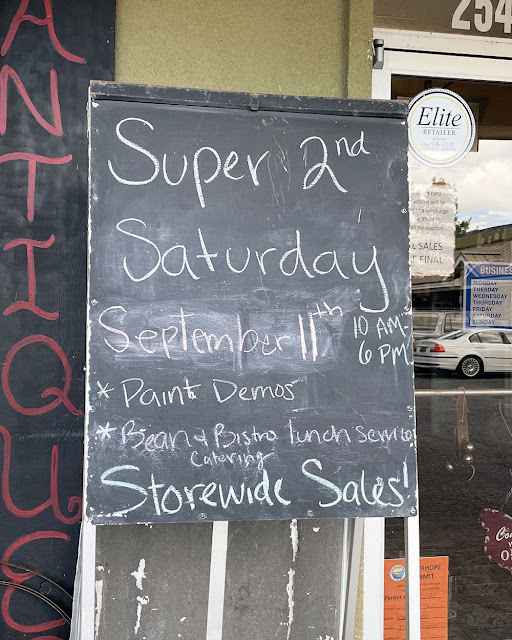 ANTIQUES
254
Elite
RETAILER
Super 2nd
Saturday
September 11th 10 AM-
6 PM
* Paint Demos
* Bean & Bistro lunch service
Catering
Storewide Sales!
SALES
FINAL
BUSINESS
MONDAY
TUESDAY
WEDNESDAY
THURSDAY
FRIDAY
SATURDAY
SUNDAY